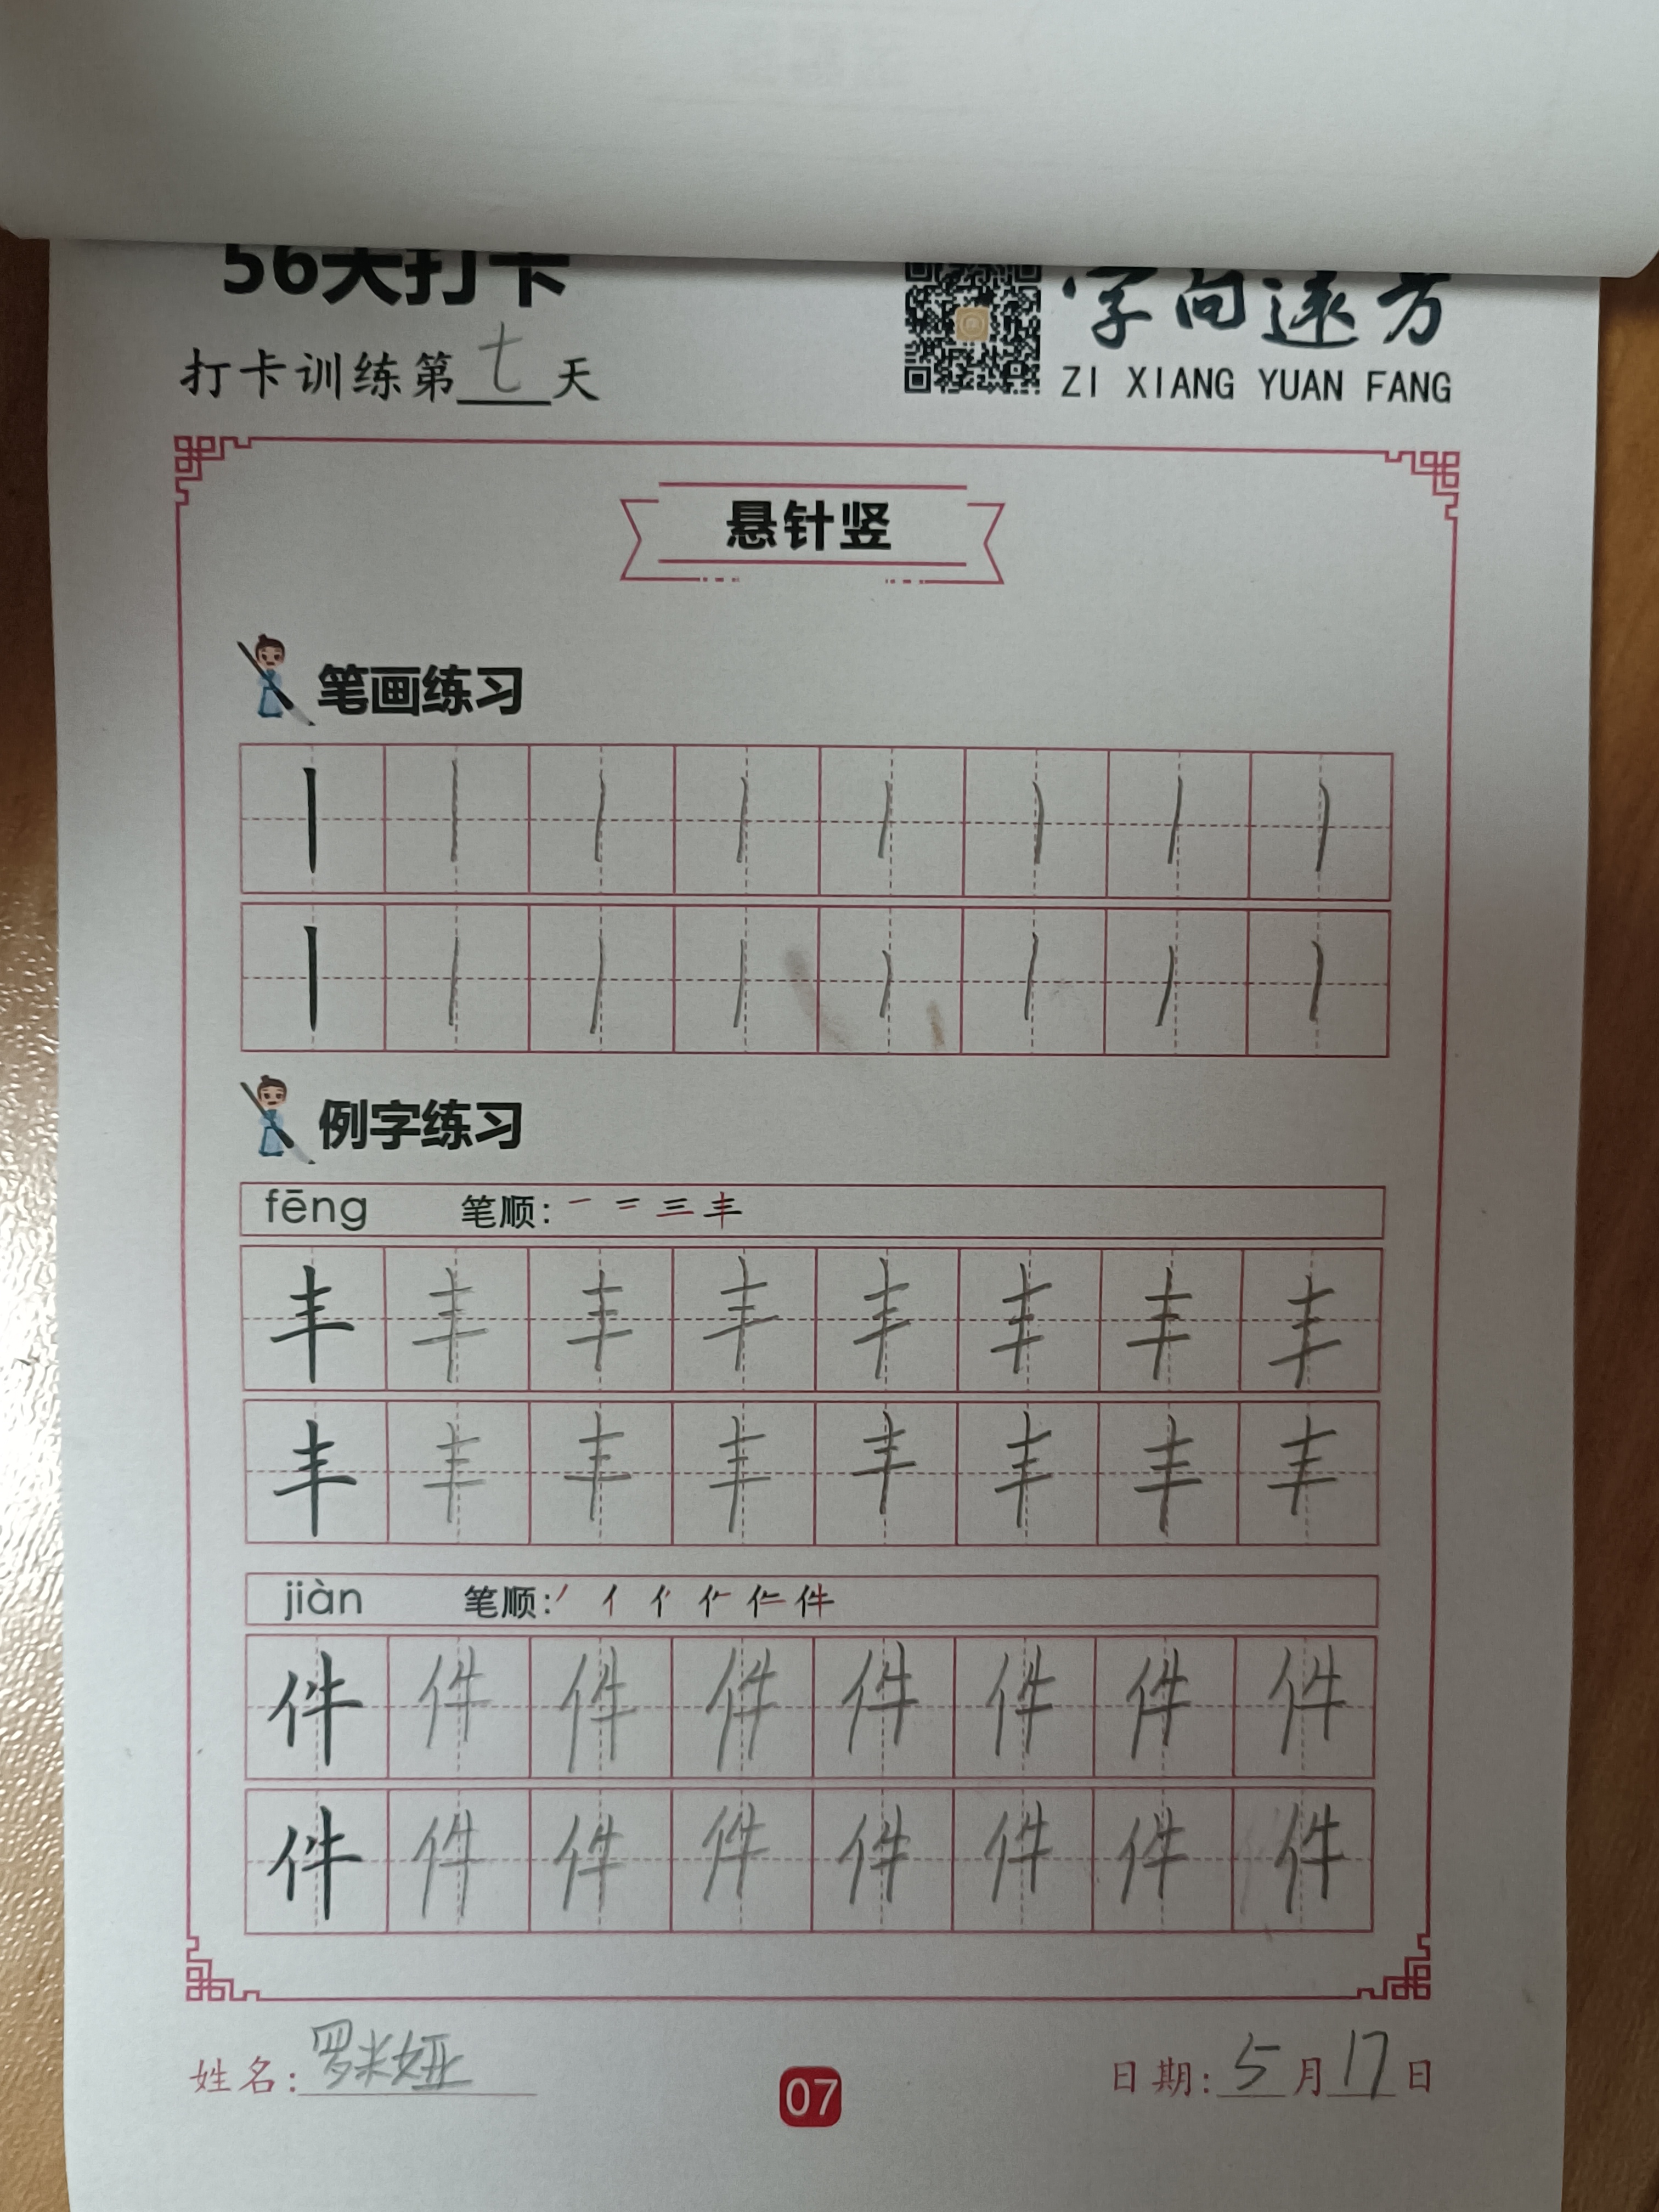 56天打卡
字向远方
打卡训练第七天
ZI XIANG YUAN FANG
悬针竖
笔画练习
丨 丨 丨 丨 丨 丨 丨 丨
丨 丨 丨 丨 丨 丨 丨 丨
例字练习
fēng 笔顺: 一 二 三 丰
丰 丰 丰 丰 丰 丰 丰 丰
丰 丰 丰 丰 丰 丰 丰 丰
jiàn 笔顺: 丿 亻 件
件 件 件 件 件 件 件 件
件 件 件 件 件 件 件 件
姓名: 罗米娅
07
日期: 5月17日